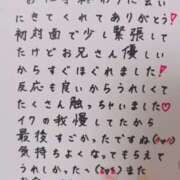 に会い
にきてくれてありがとう!
初対面で少し緊張して
たけどお兄さん優しい
からすぐほぐれました!
反応も良いからうれしくて
たくさん触っちゃいました♡
イクの我慢してたから
最後すごかったですね
気持ちよくなってもらえて
うれしかった〜 また